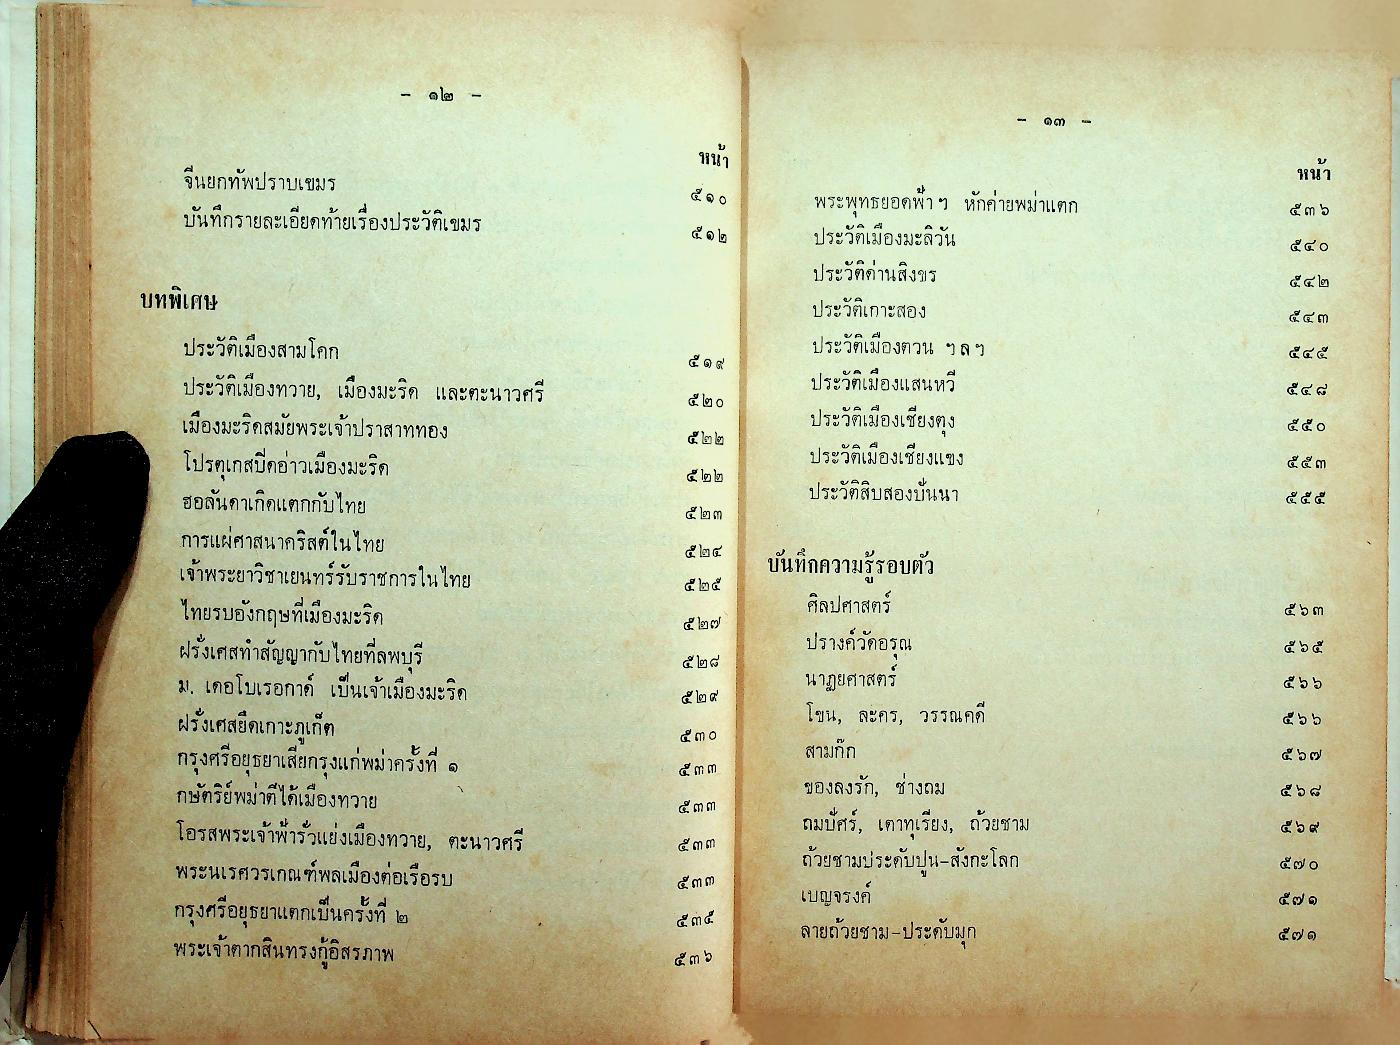 - ๑๒ -
หน้า
จีนยกทัพปราบเขมร ๕๑๐
บันทึกรายละเอียดท้ายเรื่องประวัติเขมร ๕๑๒
บทพิเศษ
ประวัติเมืองสามโคก ๕๑๙
ประวัติเมืองทวาย, เมืองมะริด และตะนาวศรี ๕๒๐
เมืองมะริดสมัยพระเจ้าปราสาททอง ๕๒๒
โปรตุเกสปิดอ่าวเมืองมะริด ๕๒๒
ฮอลันดาเกิดแตกกับไทย ๕๒๓
การแผ่ศาสนาคริสต์ในไทย ๕๒๔
เจ้าพระยาวิชาเยนทร์รับราชการในไทย ๕๒๕
ไทยรบอังกฤษที่เมืองมะริด ๕๒๗
ฝรั่งเศสทำสัญญากับไทยที่ลพบุรี ๕๒๘
ม. เดอโบเรอกาด์ เป็นเจ้าเมืองมะริด ๕๒๙
ฝรั่งเศสยึดเกาะภูเก็ต ๕๓๐
กรุงศรีอยุธยาเสียกรุงแก่พม่าครั้งที่ ๑ ๕๓๓
กษัตริย์พม่าตีได้เมืองทวาย ๕๓๓
โอรสพระเจ้าฟ้ารั่วแย่งเมืองทวาย, ตะนาวศรี ๕๓๓
พระนเรศวรเกณฑ์พลเมืองต่อเรือรบ ๕๓๓
กรุงศรีอยุธยาแตกเป็นครั้งที่ ๒ ๕๓๕
พระเจ้าตากสินทรงกู้อิสรภาพ ๕๓๖
- ๑๓ -
หน้า
พระพุทธยอดฟ้า ฯ หักค่ายพม่าแตก ๕๓๖
ประวัติเมืองมะลิวัน ๕๔๐
ประวัติด่านสิงขร ๕๔๒
ประวัติเกาะสอง ๕๔๓
ประวัติเมืองตวน ฯลฯ ๕๔๕
ประวัติเมืองแสนหวี ๕๔๘
ประวัติเมืองเชียงตุง ๕๕๐
ประวัติเมืองเชียงแขง ๕๕๓
ประวัติสิบสองปันนา ๕๕๕
บันทึกความรู้รอบตัว
ศิลปศาสตร์ ๕๖๓
ปรางค์วัดอรุณ ๕๖๕
นาฏยศาสตร์ ๕๖๖
โขน, ละคร, วรรณคดี ๕๖๖
สามก๊ก ๕๖๗
ของลงรัก, ช่างถม ๕๖๘
ถมปัศร์, เตาทุเรียง, ถ้วยชาม ๕๖๙
ถ้วยชามประดับปูน-สังกะโลก ๕๗๐
เบญจรงค์ ๕๗๑
ลายถ้วยชาม-ประดับมุก ๕๗๑